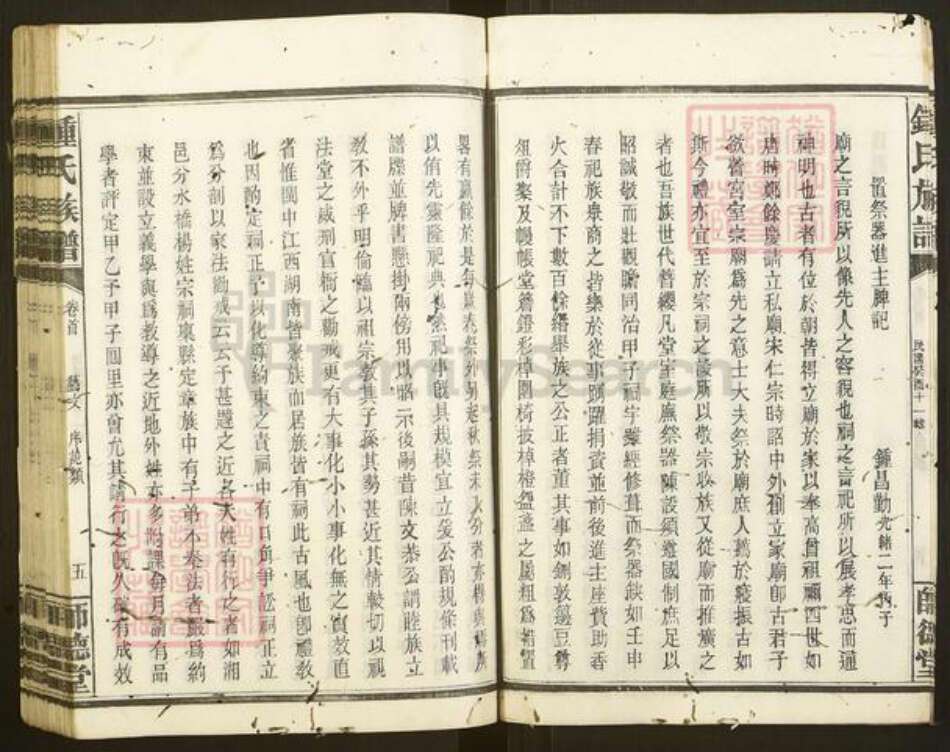 置祭器進主牌記
鍾昌勤 光緒二年丙子
廟之言貌所以像先人之容貌也祠之言祀所以展孝思而通
神明也古者有位於朝皆得立廟於家以奉高曾祖禰四世如
唐時鄭餘慶請立私廟宋仁宗時詔中外創立家廟即古君子
欲營宮室宗廟爲先之意士大夫祭於廟庶人薦於寢振古如
斯今禮亦宜至於宗祠之設所以敬宗收族又從廟而推廣之
者也吾族世代簪纓凡堂室庭廡祭器陳設須遵國制庶足以
昭誠敬而壯觀瞻同治甲子祠宇雖經修葺而祭器缺如壬申
春祀族衆商之皆樂於從事踴躍捐資並前後進主座費助香
火合計不下數百餘緡舉族之公正者董其事如鉶敦籩豆尊
俎爵案及幔帳堂簷鐙彩棹圍椅披棹櫈盤盞之屬粗爲補置
畧有贏餘於是每歲春祭外另起秋祭
以侑先靈隆祀典也然祀事既具規模宜立爰公酌規條刊載
譜牒並牌書懸掛兩傍用以昭示後嗣昔陳文恭公謂睦族立
敎不外乎明倫臨以祖宗敎其子孫其勢甚近其情較切以視
法堂之威刑官衙之勸戒更有大事化小小事化無之實效直
省惟閩中江西湖南皆聚族而居族皆有祠此古風也卽禮敎
也因酌定祠正予以化導約束之責祠中有口角爭訟祠正立
爲分剖以家法勸戒云云于甚韙之近各大姓有行之者如湘
邑分水橋楊姓宗祠稟縣定章族中有子弟不奉法者嚴爲約
束並設立義學與爲教導之近地外姓亦多附課每月諭有品
學者評定甲乙予甲子回里亦曾允其請行之既久確有成效
鍾氏族譜
卷首
藝文
序說類
五
師德堂
鍾氏族譜
師德堂
FamilySearch